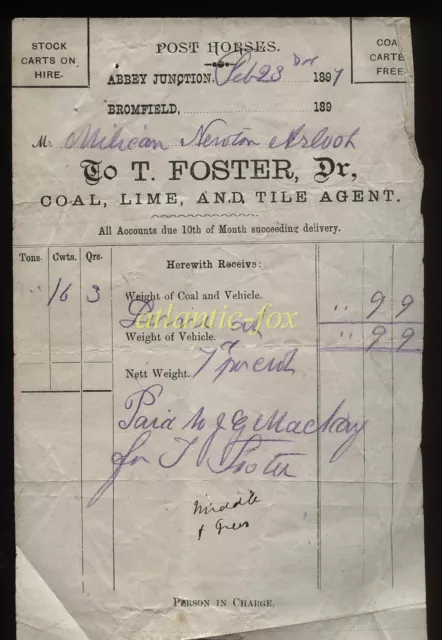 STOCK CARTS ON HIRE.
POST HORSES.
COA
CARTE
FREE
ABBEY JUNCTION, Feb 23 1897
BROMFIELD, 189
Mr Milican Newton Arlosh
To T. FOSTER, Dr,
COAL, LIME, AND TILE AGENT.
All Accounts due 10th of Month succeeding delivery.
Tons. Cwts. Qrs. Herewith Receive:
" 16 3 Weight of Coal and Vehicle. " 9 9
atlantic-fox
Weight of Vehicle. " 9 9
Nett Weight. 7 per cwt
Paid to J G Mackay
for T Foster
Middle
PERSON IN CHARGE.